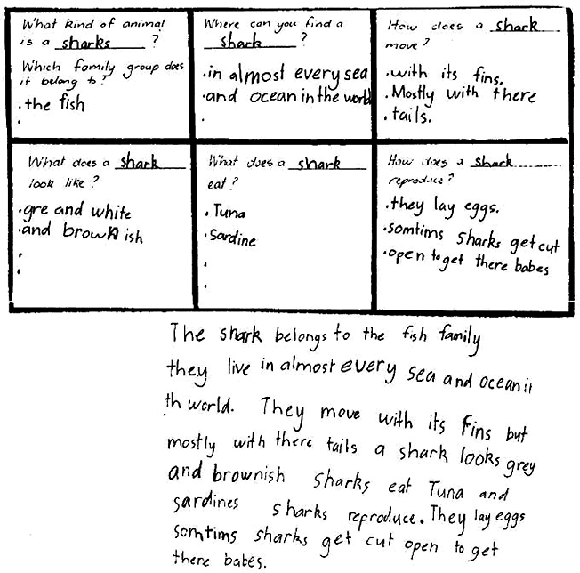 What kind of animal
is a sharks ?
Which family group does
it belong to?
. the fish
.
Where can you find a
shark ?
. in almost every sea
. and ocean in the world
.
How does a shark
move?
. with its fins.
. Mostly with there
. tails.
What does a shark
look like?
. gre and white
. and brownish
.
.
What does a shark
eat?
. Tuna
. Sardine
.
.
How does a shark
reproduce?
. they lay eggs.
. somtims sharks get cut
. open to get there babes
The shark belongs to the fish family
they live in almost every sea and ocean in
th world. They move with its fins but
mostly with there tails a shark looks grey
and brownish sharks eat Tuna and
sardines sharks reproduce. They lay eggs
somtims sharks get cut open to get
there babes.